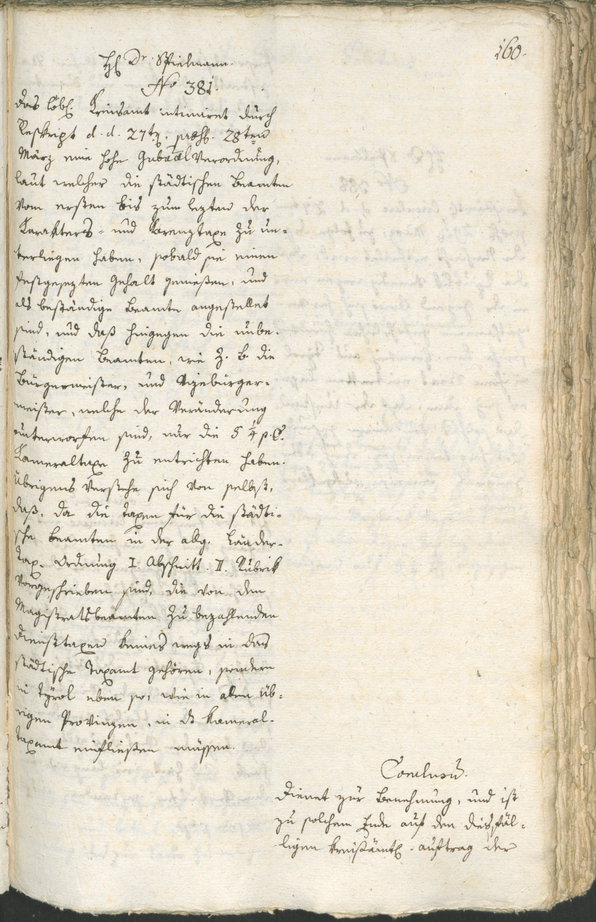 160.
H. Dr. Spielmann.
No 381.
Das löbl. Kreisamt intimiret durch
Reskript d. d. 27ten, praes. 28ten
März eine hohe Gubal Verordnung,
laut welcher die städtischen Beamten
vom ersten bis zum lezten der
Karakters- und Karenztaxe zu un-
terliegen haben, sobald sie einen
festgesezten Gehalt genießen, und
als beständige Beamte angestellet
sind, und daß hingegen die unbe-
ständigen Beamten, wie z. B. die
Bürgermeister, und Vizebürger-
meister, welche der Veränderung
unterworfen sind, nur die 5 p.C.
Kameraltaxe zu entrichten haben.
Übrigens verstehe sich von selbst,
daß, da die Taxen für die städti-
sche Beamten in der allg. Länder-
tax-Ordnung I. Abschnitt. II. Rubrik
vorgeschrieben sind, die von den
Magistratsbeamten zu bezahlenden
Diensttaxen keines wegs in das
städtische Taxamt gehören, sondern
in Tyrol eben so, wie in allen üb-
rigen Provinzen, in das Kameral-
taxamt einfließen müssen.
Conclusum.
Dienet zur Benehmung, und ist
zu solchem Ende auf den diesfäl-
ligen kreisämtl. Auftrag der